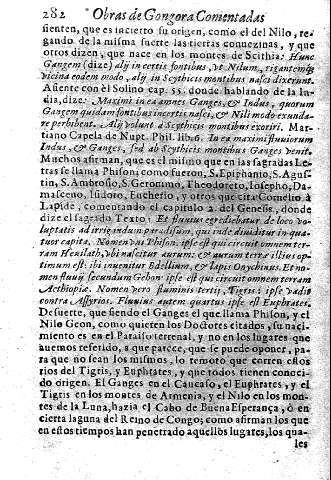 282 Obras de Gongora Comentadas
sienten, que es incierto su origen, como el del Nilo, re-
gando de la misma suerte las tierras convezinas, y que
otros dizen, que nace en los montes de Scithia: Hunc
Gangem (dize) alij incertis fontibus, vt Nilum, rigantemque
vicina eodem modo, alij in Scythicis montibus nasci dixerunt.
Asiente con el Solino cap. 55. donde hablando de la In-
dia, dize: Maximi in ea amnes Ganges, & Indus, quorum
Gangem quidam fontibus incertis nasci, & Nili modo exunda-
re perhibent. Alij volunt à Scythicis montibus exoriri. Mar-
tiano Capela de Nupt. Phil. lib. 6. In ea maximi fluuiorum
Indus, & Ganges, sed ab Scythicis montibus Ganges venit.
Muchos afirman, que es el mismo que en las sagradas Le-
tras se llama Phison, como fueron, S. Epiphanio, S. Agus-
tin, S. Ambrosio, S. Geronimo, Theodoreto, Iosepho, Da-
masceno, Isidoro, Eucherio, y otros que cita Cornelio à
Lapide, comentando el capitulo 2. del Genesis, donde
dize el sagrado Texto: Et fluuius egrediebatur de loco vo-
luptatis ad irrigandum paradisum, qui inde diuiditur in qua-
tuor capita. Nomen vni Phison. ipse est qui circuit omnem ter-
ram Heuilath, vbi nascitur aurum: & aurum terræ illius op-
timum est: ibi inuenitur bdellium, & lapis Onychinus. Et no-
men fluuij secundi Gehon. ipse est qui circuit omnem terram
Aethiopiæ. Nomen vero fluminis tertij, Tigris: ipse vadit
contra Assyrios. Fluuius autem quartus ipse est Euphrates.
De suerte, que siendo el Ganges el que llama Phison, y el
Nilo Geon, como quieren los Doctores citados, su naci-
miento es en el Paraiso terrenal, y no en los lugares que
auemos referido, a que parece, que se puede oponer, pa-
ra que no sean los mismos, lo remoto que corren estos
rios del Tigris, y Euphrates, y que todos tienen conoci-
do origen. El Ganges en el Caucaso, el Euphrates, y el
Tigris en los montes de Armenia, y el Nilo en los mon-
tes de la Luna, hazia el Cabo de Buena Esperança, ò en
cierta laguna del Reino de Congo, como afirman los que
en estos tiempos han penetrado aquellos lugares, los qua-
les